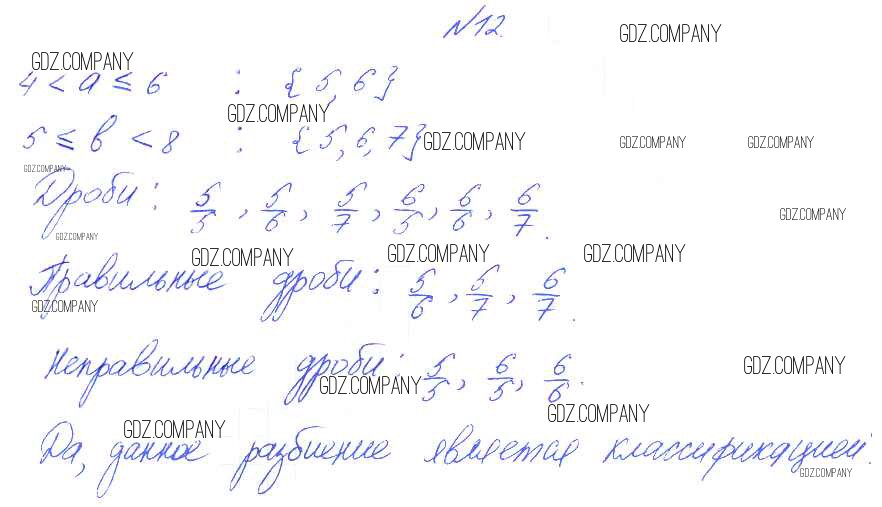 №12.
GDZ.COMPANY
GDZ.COMPANY
4 < a ≤ 6 : {5, 6}
GDZ.COMPANY
5 ≤ b < 8 : {5, 6, 7}
GDZ.COMPANY GDZ.COMPANY GDZ.COMPANY
GDZ.COMPANY
Дроби: 5/5, 5/6, 5/7, 6/5, 6/6, 6/7.
GDZ.COMPANY
GDZ.COMPANY
GDZ.COMPANY GDZ.COMPANY GDZ.COMPANY
Правильные дроби: 5/6, 5/7, 6/7.
GDZ.COMPANY
Неправильные дроби: 5/5, 6/5, 6/6.
GDZ.COMPANY
GDZ.COMPANY
GDZ.COMPANY
GDZ.COMPANY
Да, данное разбиение является классификацией.
GDZ.COMPANY